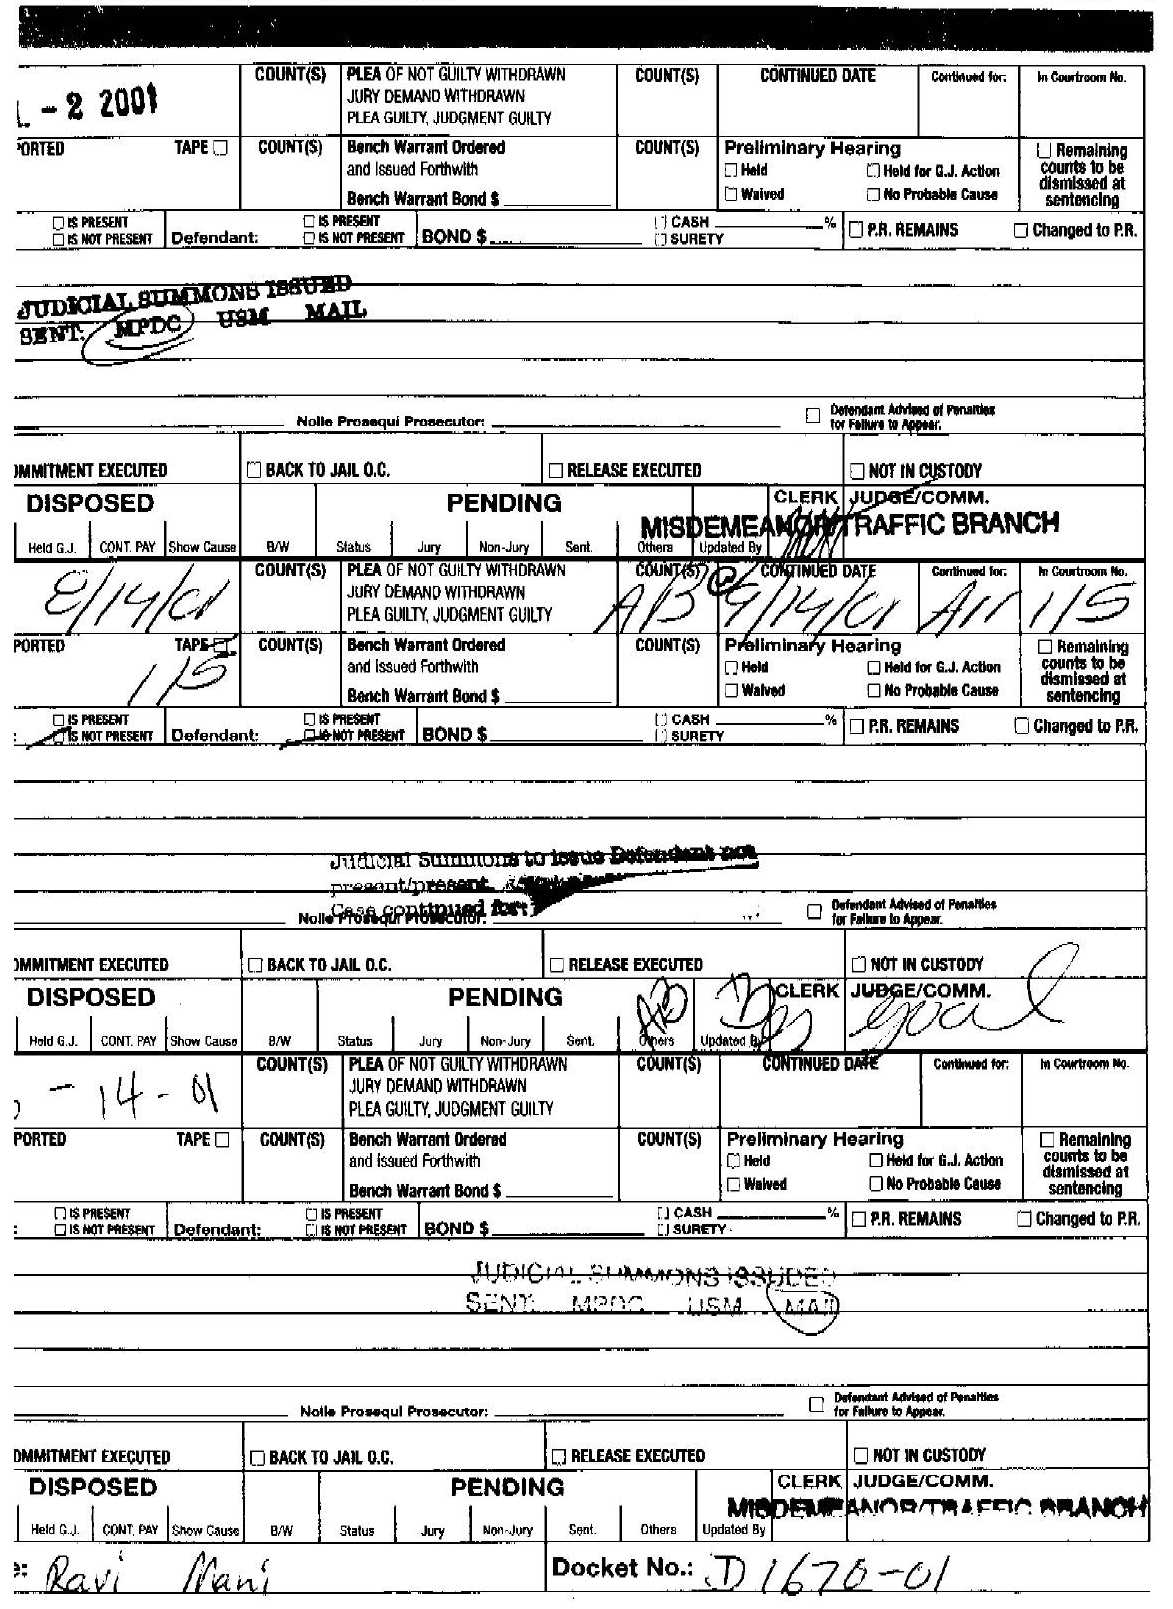 L - 2 2001
COUNT(S) PLEA OF NOT GUILTY WITHDRAWN COUNT(S) CONTINUED DATE Continued for: In Courtroom No.
JURY DEMAND WITHDRAWN
PLEA GUILTY, JUDGMENT GUILTY
PORTED TAPE ☐ COUNT(S) Bench Warrant Ordered COUNT(S) Preliminary Hearing ☐ Remaining
and Issued Forthwith ☐ Held ☐ Held for G.J. Action counts to be
dismissed at
Bench Warrant Bond $ ☐ Waived ☐ No Probable Cause sentencing
☐ IS PRESENT ☐ IS PRESENT ☐ CASH %
☐ IS NOT PRESENT Defendant: ☐ IS NOT PRESENT BOND $ ☐ SURETY ☐ P.R. REMAINS ☐ Changed to P.R.
JUDICIAL SUMMONS ISSUED
SENT: MPDC USM MAIL
Nolle Prosequi Prosecutor: ☐ Defendant Advised of Penalties
for Failure to Appear.
OMMITMENT EXECUTED ☐ BACK TO JAIL O.C. ☐ RELEASE EXECUTED ☐ NOT IN CUSTODY
DISPOSED PENDING CLERK JUDGE/COMM.
MISDEMEANOR/TRAFFIC BRANCH
Held G.J. CONT. PAY Show Cause B/W Status Jury Non-Jury Sent. Others Updated By
8/14/01 COUNT(S) PLEA OF NOT GUILTY WITHDRAWN COUNT(S) CONTINUED DATE Continued for: In Courtroom No.
JURY DEMAND WITHDRAWN A/B @ 9/14/01 Arr 115
PLEA GUILTY, JUDGMENT GUILTY
PORTED TAPE ☐ COUNT(S) Bench Warrant Ordered COUNT(S) Preliminary Hearing ☐ Remaining
115 and Issued Forthwith ☐ Held ☐ Held for G.J. Action counts to be
dismissed at
Bench Warrant Bond $ ☐ Waived ☐ No Probable Cause sentencing
☐ IS PRESENT ☐ IS PRESENT ☐ CASH %
: ☐ IS NOT PRESENT Defendant: ☐ IS NOT PRESENT BOND $ ☐ SURETY ☐ P.R. REMAINS ☐ Changed to P.R.
Judicial Summons to issue Defendant not
present/present
Case continued for:
Nolle Prosequi Prosecutor: ☐ Defendant Advised of Penalties
for Failure to Appear.
OMMITMENT EXECUTED ☐ BACK TO JAIL O.C. ☐ RELEASE EXECUTED ☐ NOT IN CUSTODY
DISPOSED PENDING CLERK JUDGE/COMM.
Held G.J. CONT. PAY Show Cause B/W Status Jury Non-Jury Sent. Others Updated By
- 14 - 01 COUNT(S) PLEA OF NOT GUILTY WITHDRAWN COUNT(S) CONTINUED DATE Continued for: In Courtroom No.
JURY DEMAND WITHDRAWN
PLEA GUILTY, JUDGMENT GUILTY
PORTED TAPE ☐ COUNT(S) Bench Warrant Ordered COUNT(S) Preliminary Hearing ☐ Remaining
and Issued Forthwith ☐ Held ☐ Held for G.J. Action counts to be
dismissed at
Bench Warrant Bond $ ☐ Waived ☐ No Probable Cause sentencing
☐ IS PRESENT ☐ IS PRESENT ☐ CASH %
: ☐ IS NOT PRESENT Defendant: ☐ IS NOT PRESENT BOND $ ☐ SURETY ☐ P.R. REMAINS ☐ Changed to P.R.
JUDICIAL SUMMONS ISSUDED
SENT: MPDC USM MAIL
Nolle Prosequi Prosecutor: ☐ Defendant Advised of Penalties
for Failure to Appear.
OMMITMENT EXECUTED ☐ BACK TO JAIL O.C. ☐ RELEASE EXECUTED ☐ NOT IN CUSTODY
DISPOSED PENDING CLERK JUDGE/COMM.
MISDEMEANOR/TRAFFIC BRANCH
Held G.J. CONT. PAY Show Cause B/W Status Jury Non-Jury Sent. Others Updated By
e: Ravi Mani Docket No.: D 1670-01